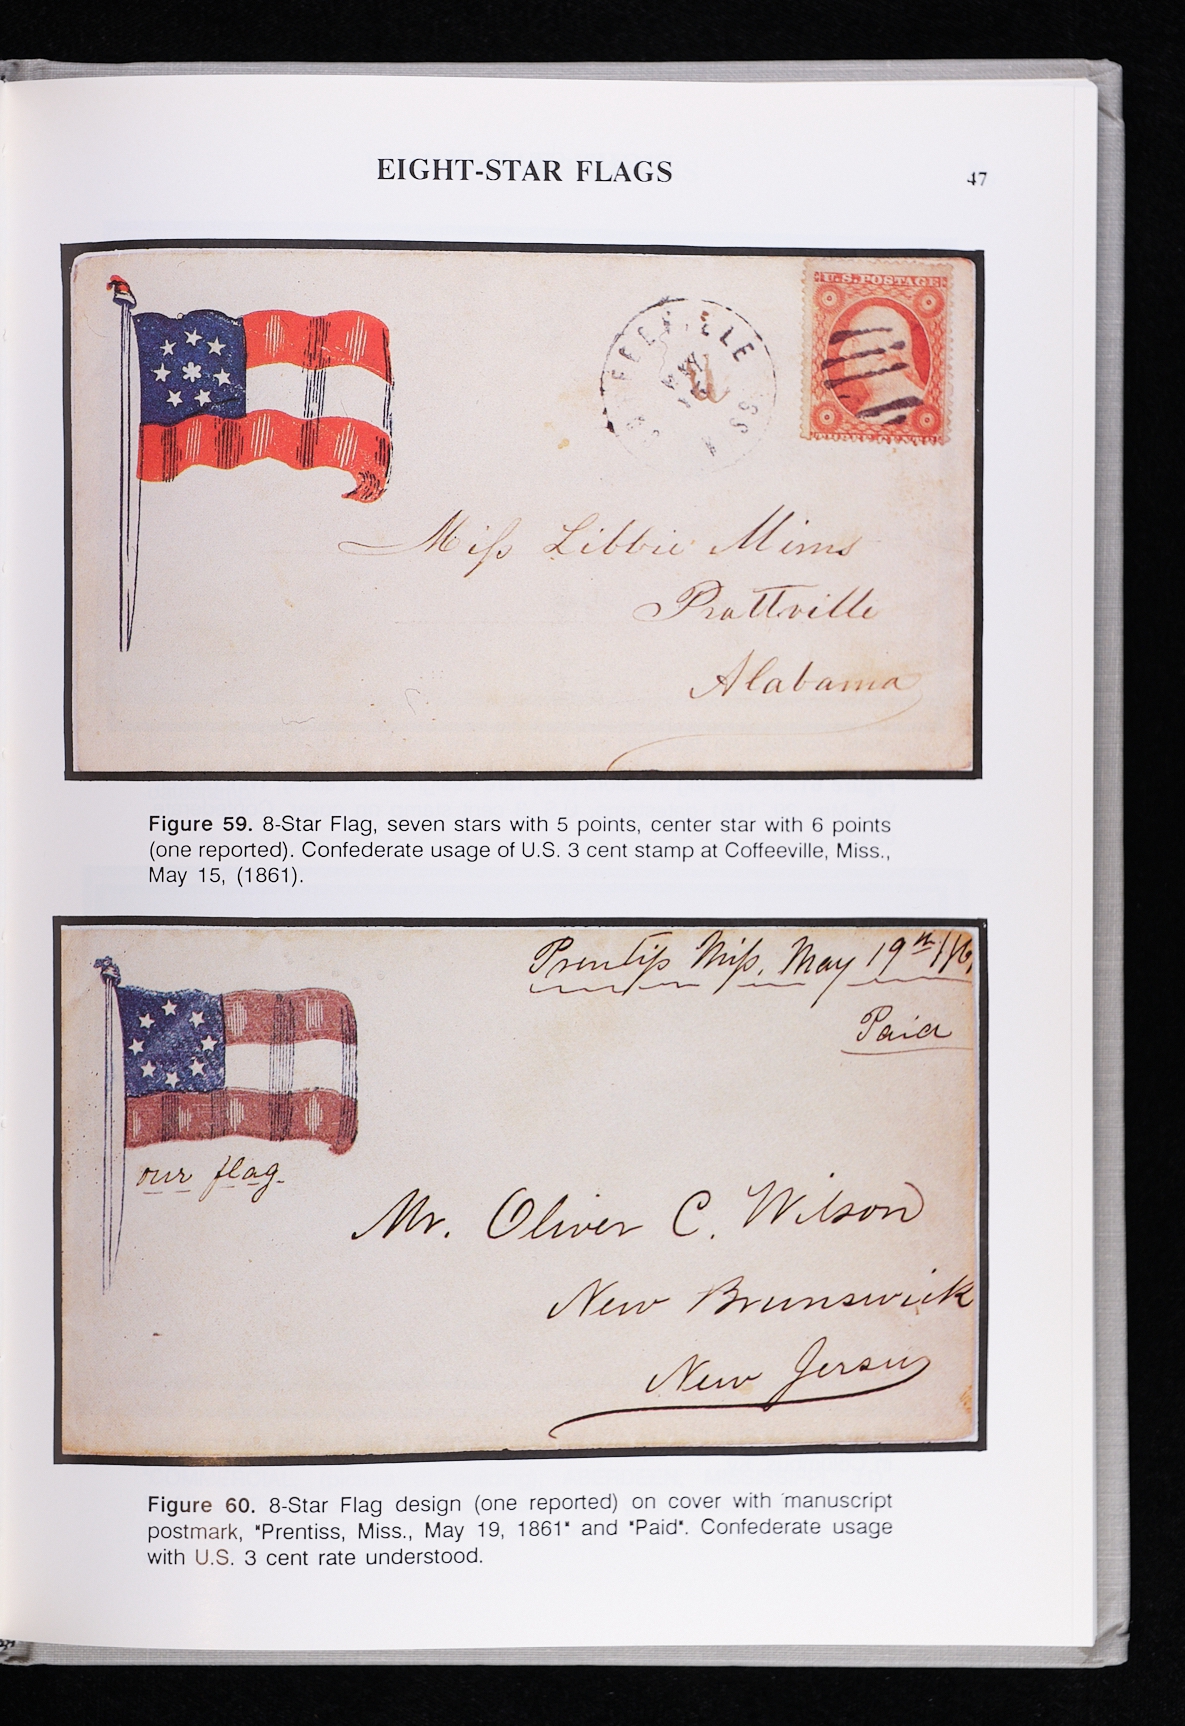 EIGHT-STAR FLAGS
47
U.S. POSTAGE
THREE CENTS
Miss Libbie Mims
Prattville
Alabama
Figure 59. 8-Star Flag, seven stars with 5 points, center star with 6 points
(one reported). Confederate usage of U.S. 3 cent stamp at Coffeeville, Miss.,
May 15, (1861).
Prentiss Miss. May 19th
Paid
our flag.
Mr. Oliver C. Wilson
New Brunswick
New Jersey
Figure 60. 8-Star Flag design (one reported) on cover with manuscript
postmark, "Prentiss, Miss., May 19, 1861" and "Paid". Confederate usage
with U.S. 3 cent rate understood.